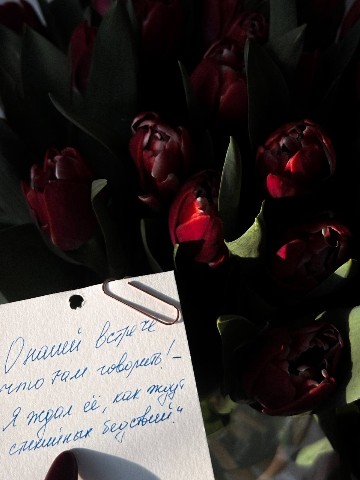 О нашей встрече
что там говорить! –
Я ждал её, как ждут
стихийных бедствий."